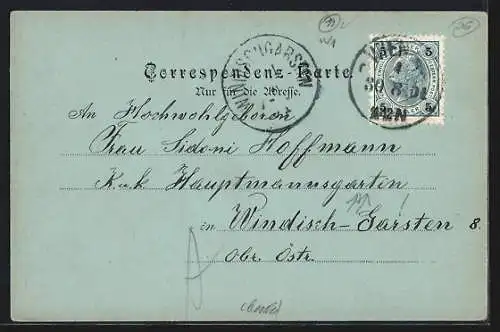 Correspondenz-Karte.
Nur für die Adresse.
WINDISCHGARSTEN
5 5
5 5
An Hochwohlgeboren
Frau Sidoni Hoffmann
K.u.k Hauptmannsgattin
in Windisch-Garsten 8.
Obr. Östr.